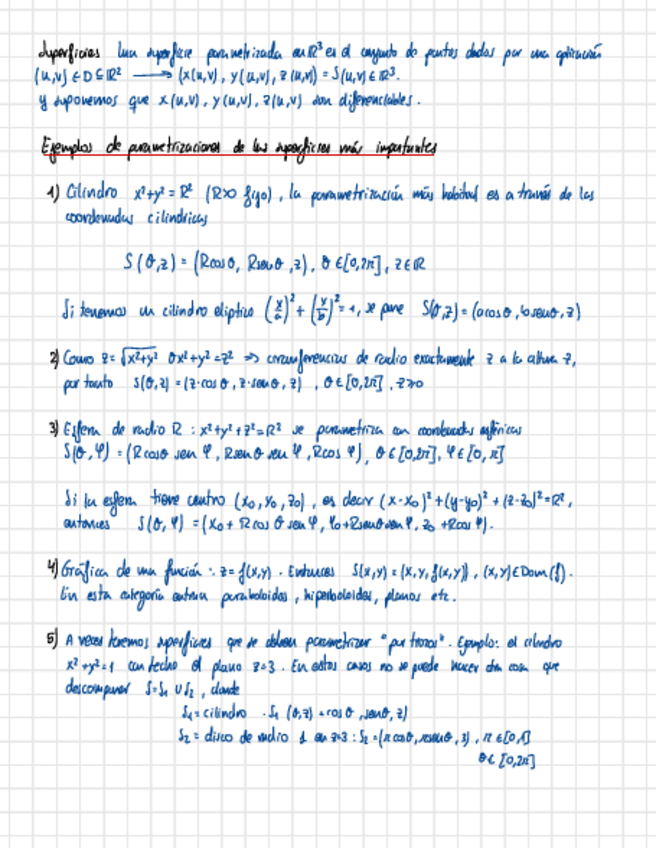 Superficies Una superficie parametrizada en ℝ³ es el conjunto de puntos dados por una aplicación
(u,v) ∈ D ⊆ ℝ² ⟶ (x(u,v), y(u,v), z(u,v)) = S(u,v) ∈ ℝ³.
y suponemos que x(u,v), y(u,v), z(u,v) son diferenciables.
Ejemplos de parametrizaciones de las superficies más importantes
1) Cilindro x²+y² = R² (R>0 fijo), la parametrización más habitual es a través de las
coordenadas cilíndricas
S(θ,z) = (Rcosθ, Rsenθ, z), θ ∈ [0,2π], z ∈ ℝ
Si tenemos un cilindro elíptico (x/a)² + (y/b)² = 1, se pone S(θ,z) = (acosθ, bsenθ, z)
2) Cono z = √x²+y² o x²+y² = z² ⇒ circunferencias de radio exactamente z a la altura z,
por tanto S(θ,z) = (z·cosθ, z·senθ, z), θ ∈ [0,2π], z>0
3) Esfera de radio R : x²+y²+z² = R² se parametriza con coordenadas esféricas
S(θ,φ) = (Rcosθ sen φ, Rsenθ sen φ, Rcos φ), θ ∈ [0,2π], φ ∈ [0,π]
Si la esfera tiene centro (x₀, y₀, z₀), es decir (x-x₀)² + (y-y₀)² + (z-z₀)² = R²,
entonces S(θ,φ) = (x₀ + Rcosθ sen φ, y₀ + Rsenθ sen φ, z₀ + Rcos φ).
4) Gráfica de una función : z = f(x,y). Entonces S(x,y) = (x, y, f(x,y)), (x,y) ∈ Dom(f).
En esta categoría entran paraboloides, hiperboloides, planos etc.
5) A veces tenemos superficies que se deben parametrizar "por trozos". Ejemplo: el cilindro
x²+y²=1 con techo el plano z=3. En estos casos no se puede hacer otra cosa que
descomponer S = S₁ ∪ S₂, donde
S₁ = cilindro . S₁ (θ,z) = cosθ, senθ, z)
S₂ = disco de radio 1 en z=3 : S₂ = (r cosθ, rsenθ, 3), r ∈ [0,1]
θ ∈ [0,2π]